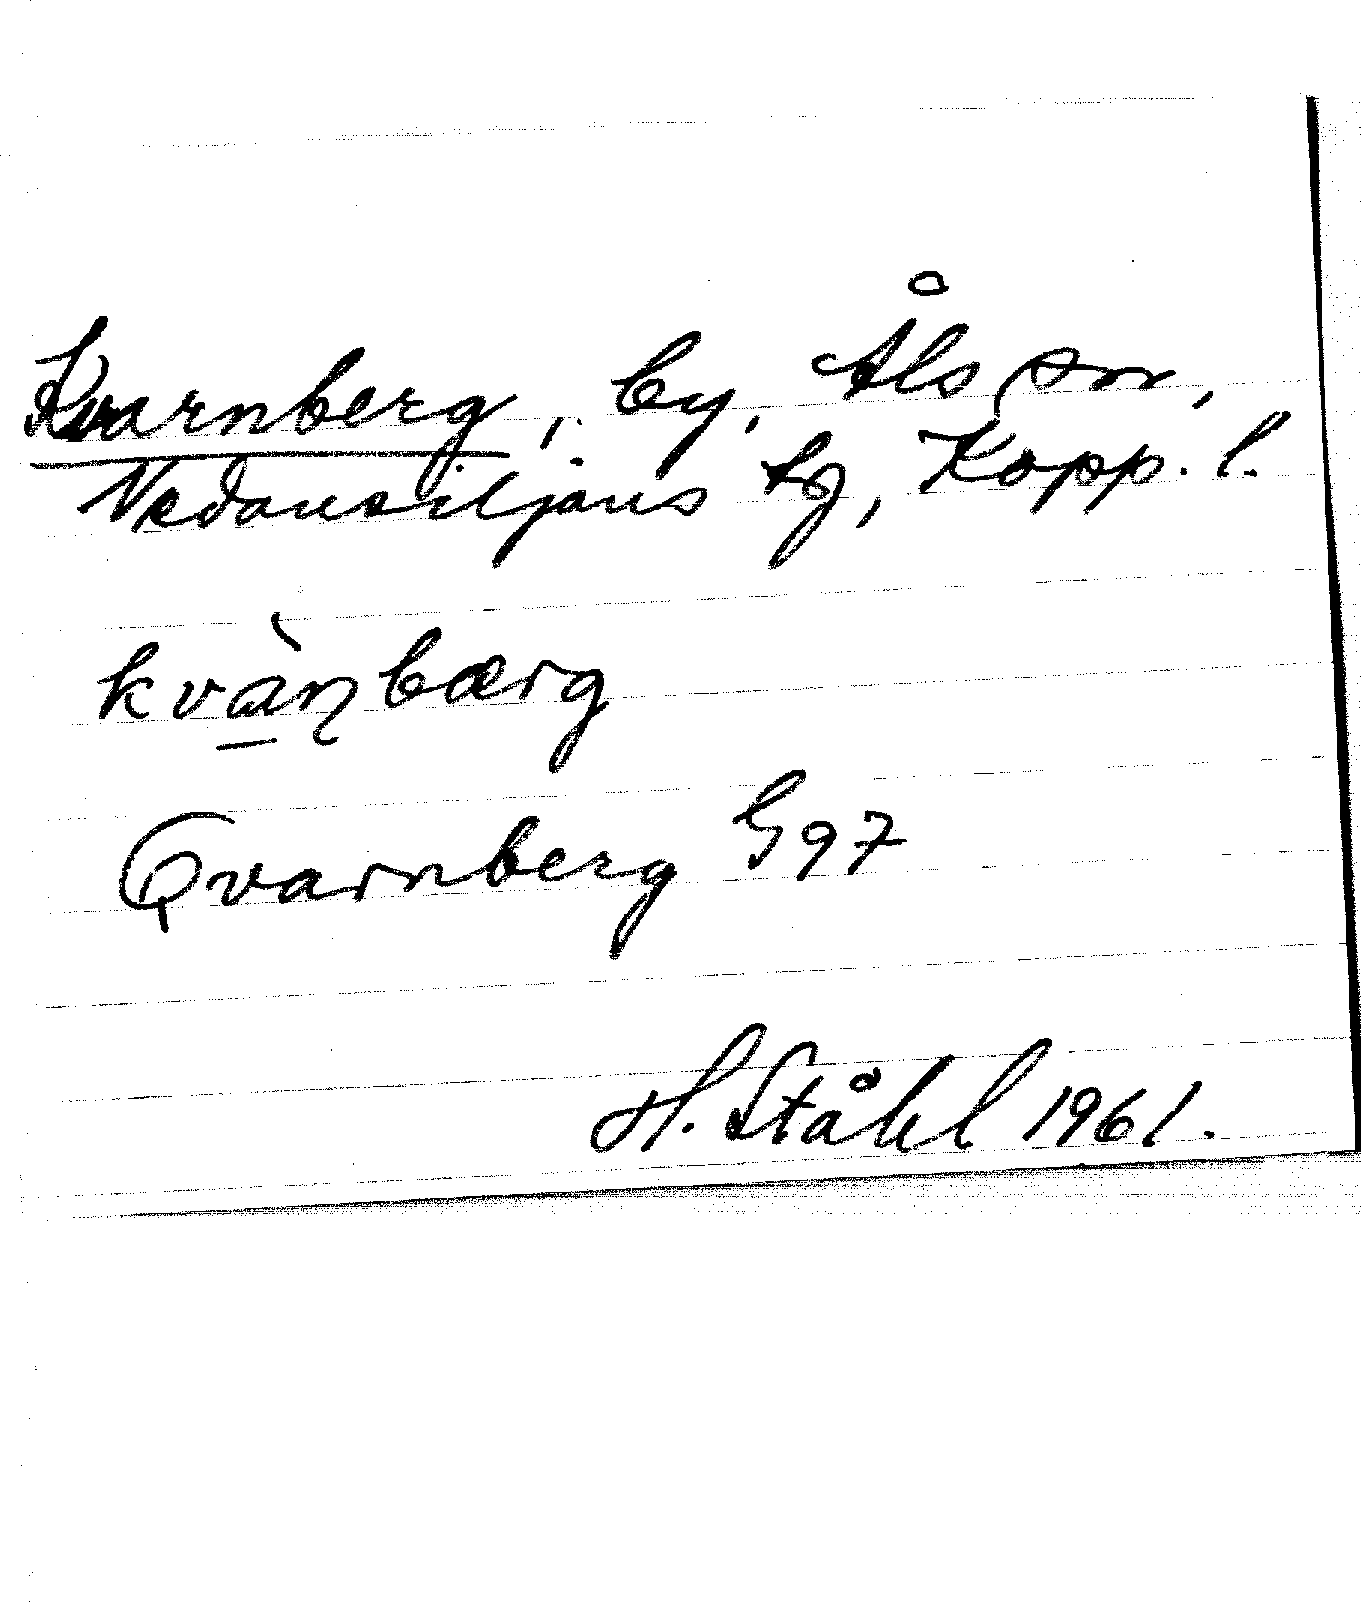 Kvarnberg, by, Åls sn,
Nedansiljans tg, Kopp. l.
kvà̱ɳbærg
Qvarnberg G97
H. Ståhl 1961.